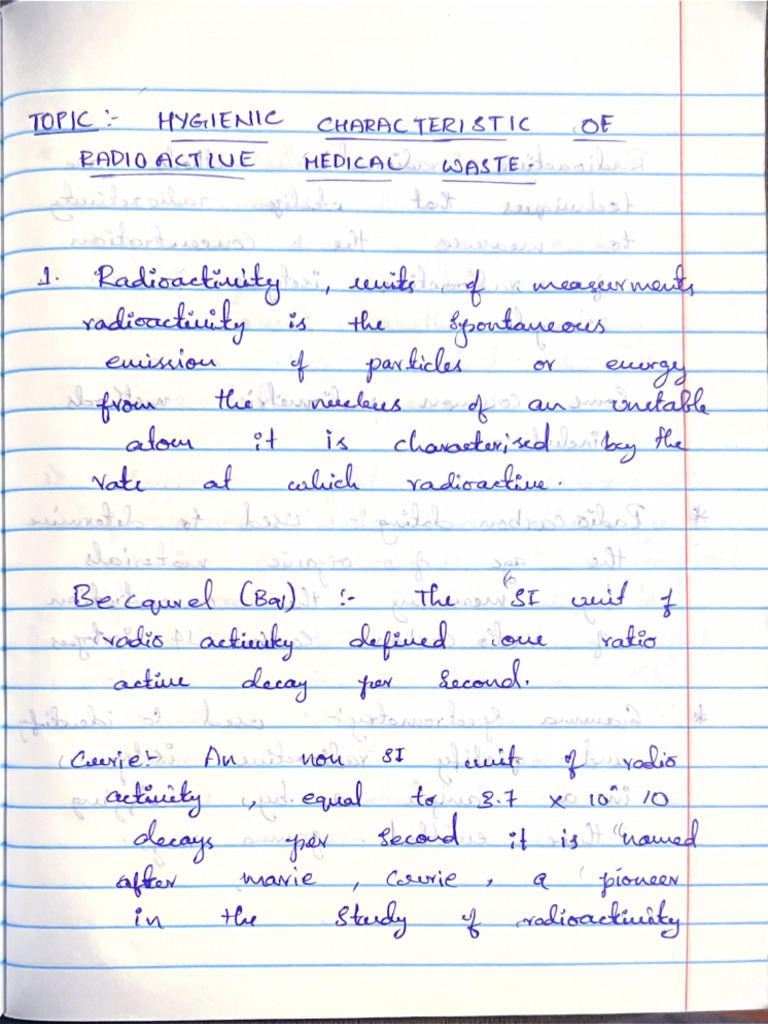 TOPIC :- HYGIENIC CHARACTERISTIC OF
RADIOACTIVE MEDICAL WASTE.
1. Radioactivity, units, of measurments
radioactivity is the spontaneous
emission of particles or energy
from the nucleus of an unstable
atom it is characterised by the
rate at which radioactive.
Becqurel (Bq) :- The SI unit of
radio activity defined ione ratio
active decay per second.
Curie :- An non SI unit of radio
activity, equal to 3.7 x 10^ 10
decays per second it is "named
after marie, Courie, a pioneer
in the study of radioactivity